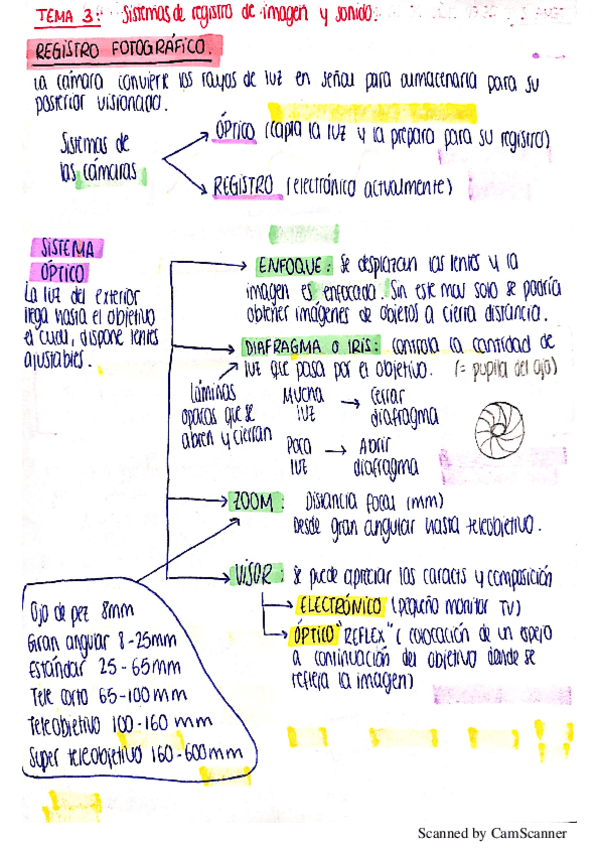 TEMA 3: Sistemas de registro de imagen y sonido.
REGISTRO FOTOGRÁFICO.
La cámara convierte los rayos de luz en señal para almacenarla para su
posterior visionado.
Sistemas de
las cámaras
ÓPTICO (capta la luz y la prepara para su registro)
REGISTRO (electrónico actualmente)
SISTEMA
ÓPTICO
La luz del exterior
llega hasta el objetivo
el cual, dispone lentes
ajustables.
ENFOQUE: Se desplazan las lentes y la
imagen es enfocada. Sin este mov solo se podría
obtener imágenes de objetos a cierta distancia.
DIAFRAGMA O IRIS: controla la cantidad de
luz que pasa por el objetivo. (= pupila del ojo)
láminas
opacas que se
abren y cierran
Mucha
luz
Cerrar
diafragma
Poca
luz
Abrir
diafragma
ZOOM: Distancia focal (mm)
Desde gran angular hasta teleobjetivo.
VISOR: Se puede apreciar las caracts y composición
ELECTRÓNICO (pequeño monitor TV)
ÓPTICO "REFLEX" (colocación de un espejo
a continuación del objetivo donde se
refleja la imagen)
Ojo de pez 8mm
Gran angular 8-25mm
Estándar 25-65mm
Tele corto 65-100mm
Teleobjetivo 100-160mm
Super teleobjetivo 160-600mm
Scanned by CamScanner